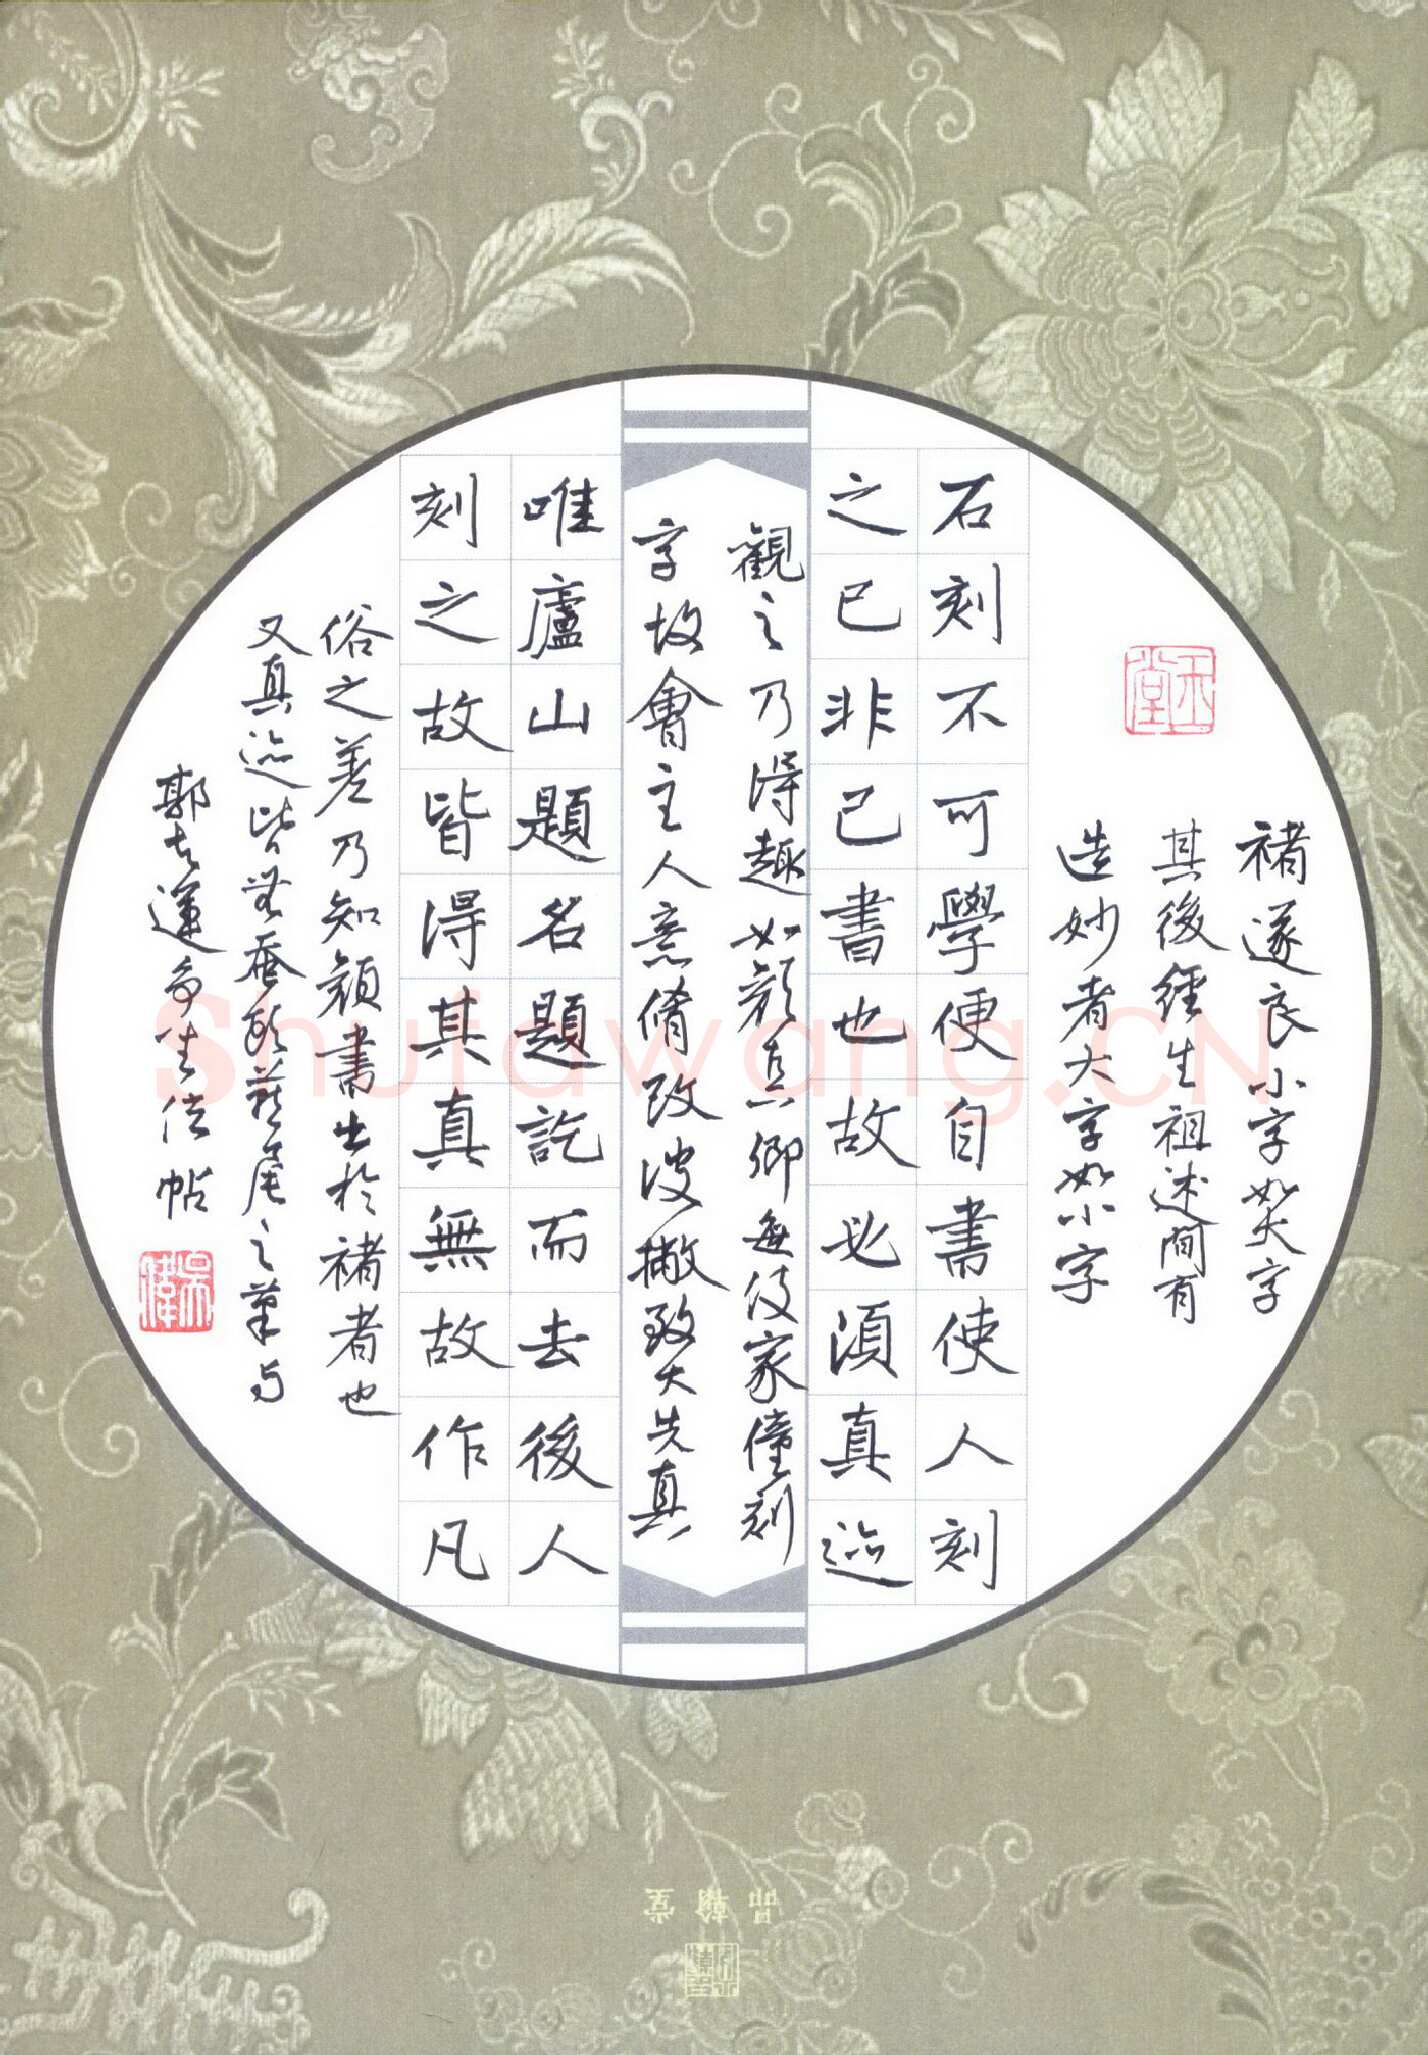 褚遂良小字如大字
其後經生祖述間有
造妙者大字如小字
石刻不可學便自書使人刻
之已非己書也故必須真迹
觀之乃得趣如顏真卿每使家僮刻
字故會主人意脩改波撇致大失真
唯廬山題名題訖而去後人
刻之故皆得其真無故作凡
俗之差乃知顏書出於褚者也
又真迹皆無蠶頭燕尾之筆与
郭知運爭坐位帖
品翰堂
Shufawang.CN